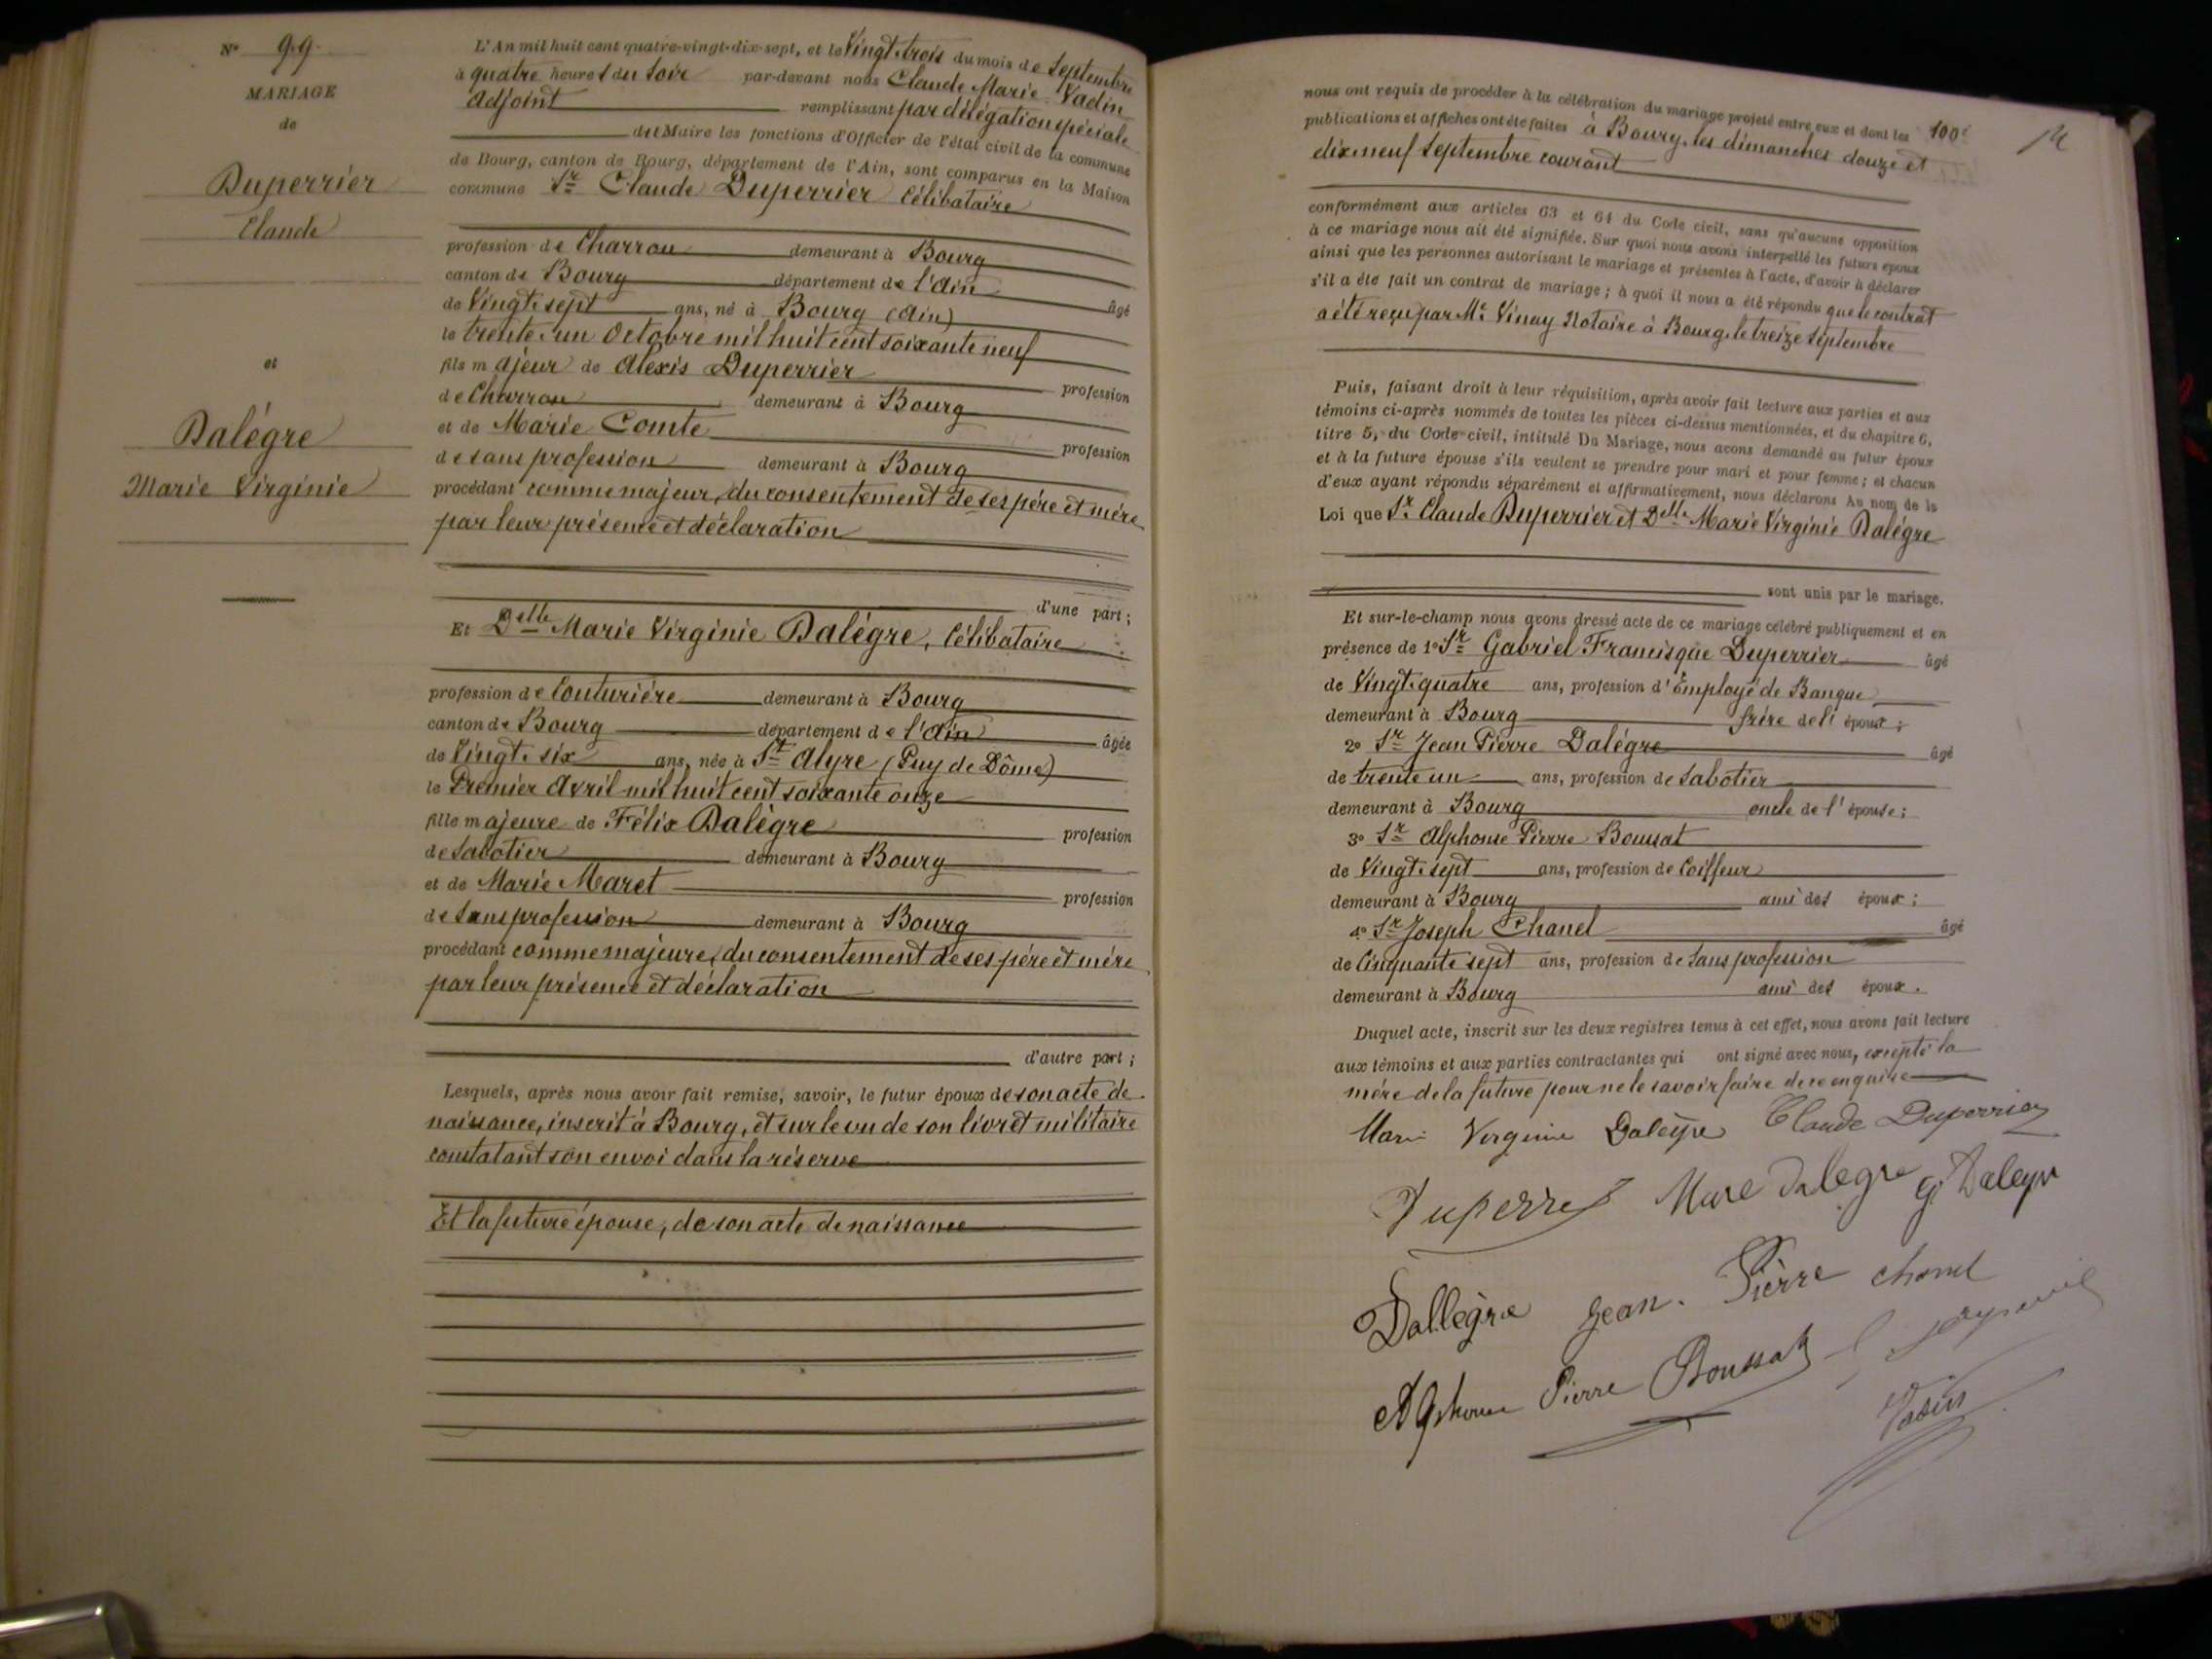 N° 99.
MARIAGE
de
Duperrier
Claude
et
Dalègre
Marie Virginie
L'An mil huit cent quatre-vingt-dix-sept, et le Vingt-trois du mois de Septembre
à quatre heures du soir par-devant nous Claude Marie Vadin
adjoint remplissant par délégation spéciale
du Maire les fonctions d'Officier de l'état civil de la commune
de Bourg, canton de Bourg, département de l'Ain, sont comparus en la Maison
commune Sr Claude Duperrier Célibataire
profession de Charron demeurant à Bourg
canton de Bourg département de l'Ain âgé
de Vingt-sept ans, né à Bourg (Ain)
le trente-un Octobre mil huit cent soixante neuf
fils majeur de Alexis Duperrier profession
de Charron demeurant à Bourg
et de Marie Comte profession
de sans profession demeurant à Bourg
procédant comme majeur, du consentement de ses père et mère
par leur présence et déclaration
d'une part;
Et Delle Marie Virginie Dalègre, Célibataire
profession de Couturière demeurant à Bourg
canton de Bourg département de l'Ain âgée
de Vingt-six ans, née à St Alyre (Puy de Dôme)
le Premier Avril mil huit cent soixante onze
fille majeure de Félix Dalègre profession
de Sabotier demeurant à Bourg
et de Marie Maret profession
de Sans profession demeurant à Bourg
procédant comme majeure, du consentement de ses père et mère
par leur présence et déclaration
d'autre part;
Lesquels, après nous avoir fait remise, savoir, le futur époux de son acte de
naissance, inscrit à Bourg, et sur le vu de son livret militaire
constatant son envoi dans la réserve
Et la future épouse, de son acte de naissance
nous ont requis de procéder à la célébration du mariage projeté entre eux et dont les
publications et affiches ont été faites à Bourg, les dimanches douze et
dix-neuf Septembre courant
conformément aux articles 63 et 64 du Code civil, sans qu'aucune opposition
à ce mariage nous ait été signifiée. Sur quoi nous avons interpellé les futurs époux
ainsi que les personnes autorisant le mariage et présentes à l'acte, d'avoir à déclarer
s'il a été fait un contrat de mariage; à quoi il nous a été répondu que le contrat
a été reçu par Me Vinay Notaire à Bourg, le treize Septembre
Puis, faisant droit à leur réquisition, après avoir fait lecture aux parties et aux
témoins ci-après nommés de toutes les pièces ci-dessus mentionnées, et du chapitre 6,
titre 5, du Code civil, intitulé Du Mariage, nous avons demandé au futur époux
et à la future épouse s'ils veulent se prendre pour mari et pour femme; et chacun
d'eux ayant répondu séparément et affirmativement, nous déclarons Au nom de la
Loi que Sr Claude Duperrier et Delle Marie Virginie Dalègre
sont unis par le mariage.
Et sur-le-champ nous avons dressé acte de ce mariage célébré publiquement et en
présence de 1° Sr Gabriel Francisque Duperrier âgé
de Vingt-quatre ans, profession d'Employé de Banque
demeurant à Bourg frère de l'époux;
2° Sr Jean Pierre Dalègre âgé
de trente un ans, profession de Sabotier
demeurant à Bourg oncle de l'épouse;
3° Sr Alphonse Pierre Boussat
de Vingt-sept ans, profession de Coiffeur
demeurant à Bourg ami des époux;
4° Sr Joseph Chanel âgé
de Cinquante sept ans, profession de Sans profession
demeurant à Bourg ami des époux.
Duquel acte, inscrit sur les deux registres tenus à cet effet, nous avons fait lecture
aux témoins et aux parties contractantes qui ont signé avec nous, excepté la
mère de la future pour ne le savoir faire de ce enquise
Marie Virginie Dalègre Claude Duperrier
Duperrier Dalegre
Dallègre Jean. Pierre Chanel
Alphonse Pierre Boussat
Vadin
100e